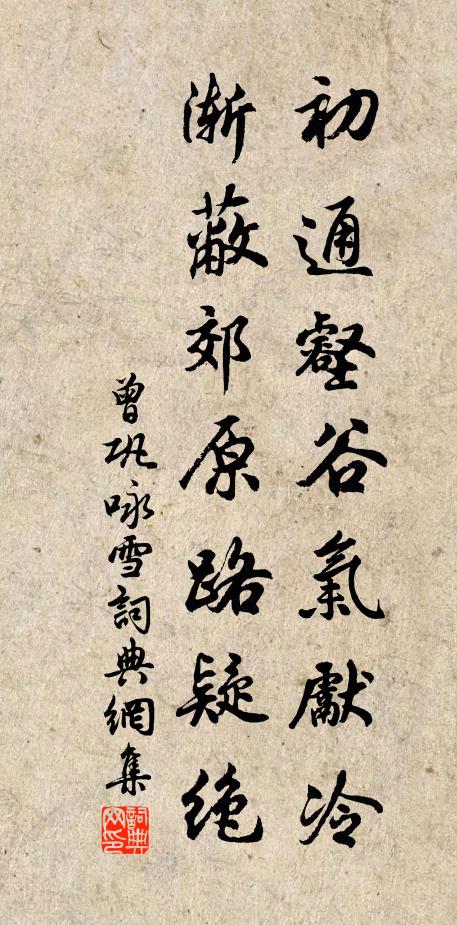 初通壑谷氣獻冷
漸蔽郊原路疑絶
曾巩咏雪詞典網集
詞典網印